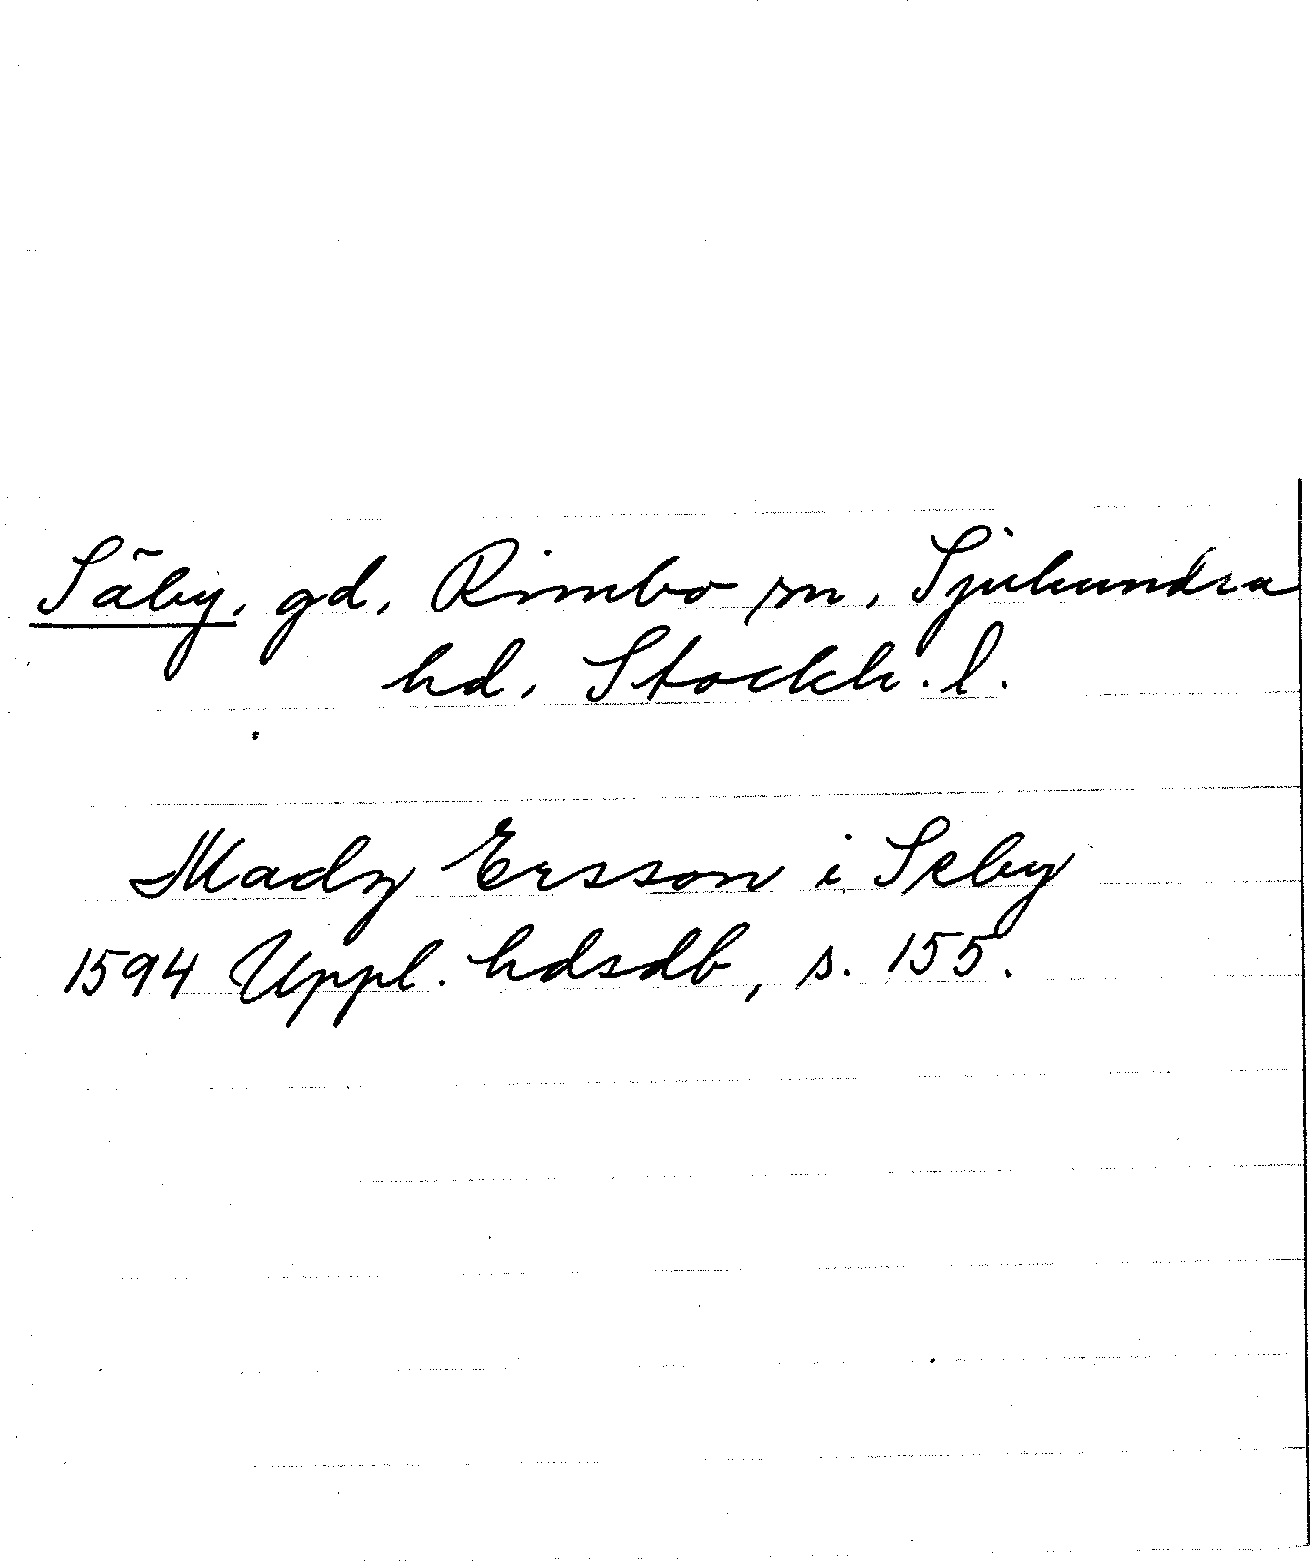 Säby, gd, Rimbo sn, Sjuhundra
hd, Stockh. l.
Madz Ersson i Seby
1594 Uppl. hdsdb, s. 155.